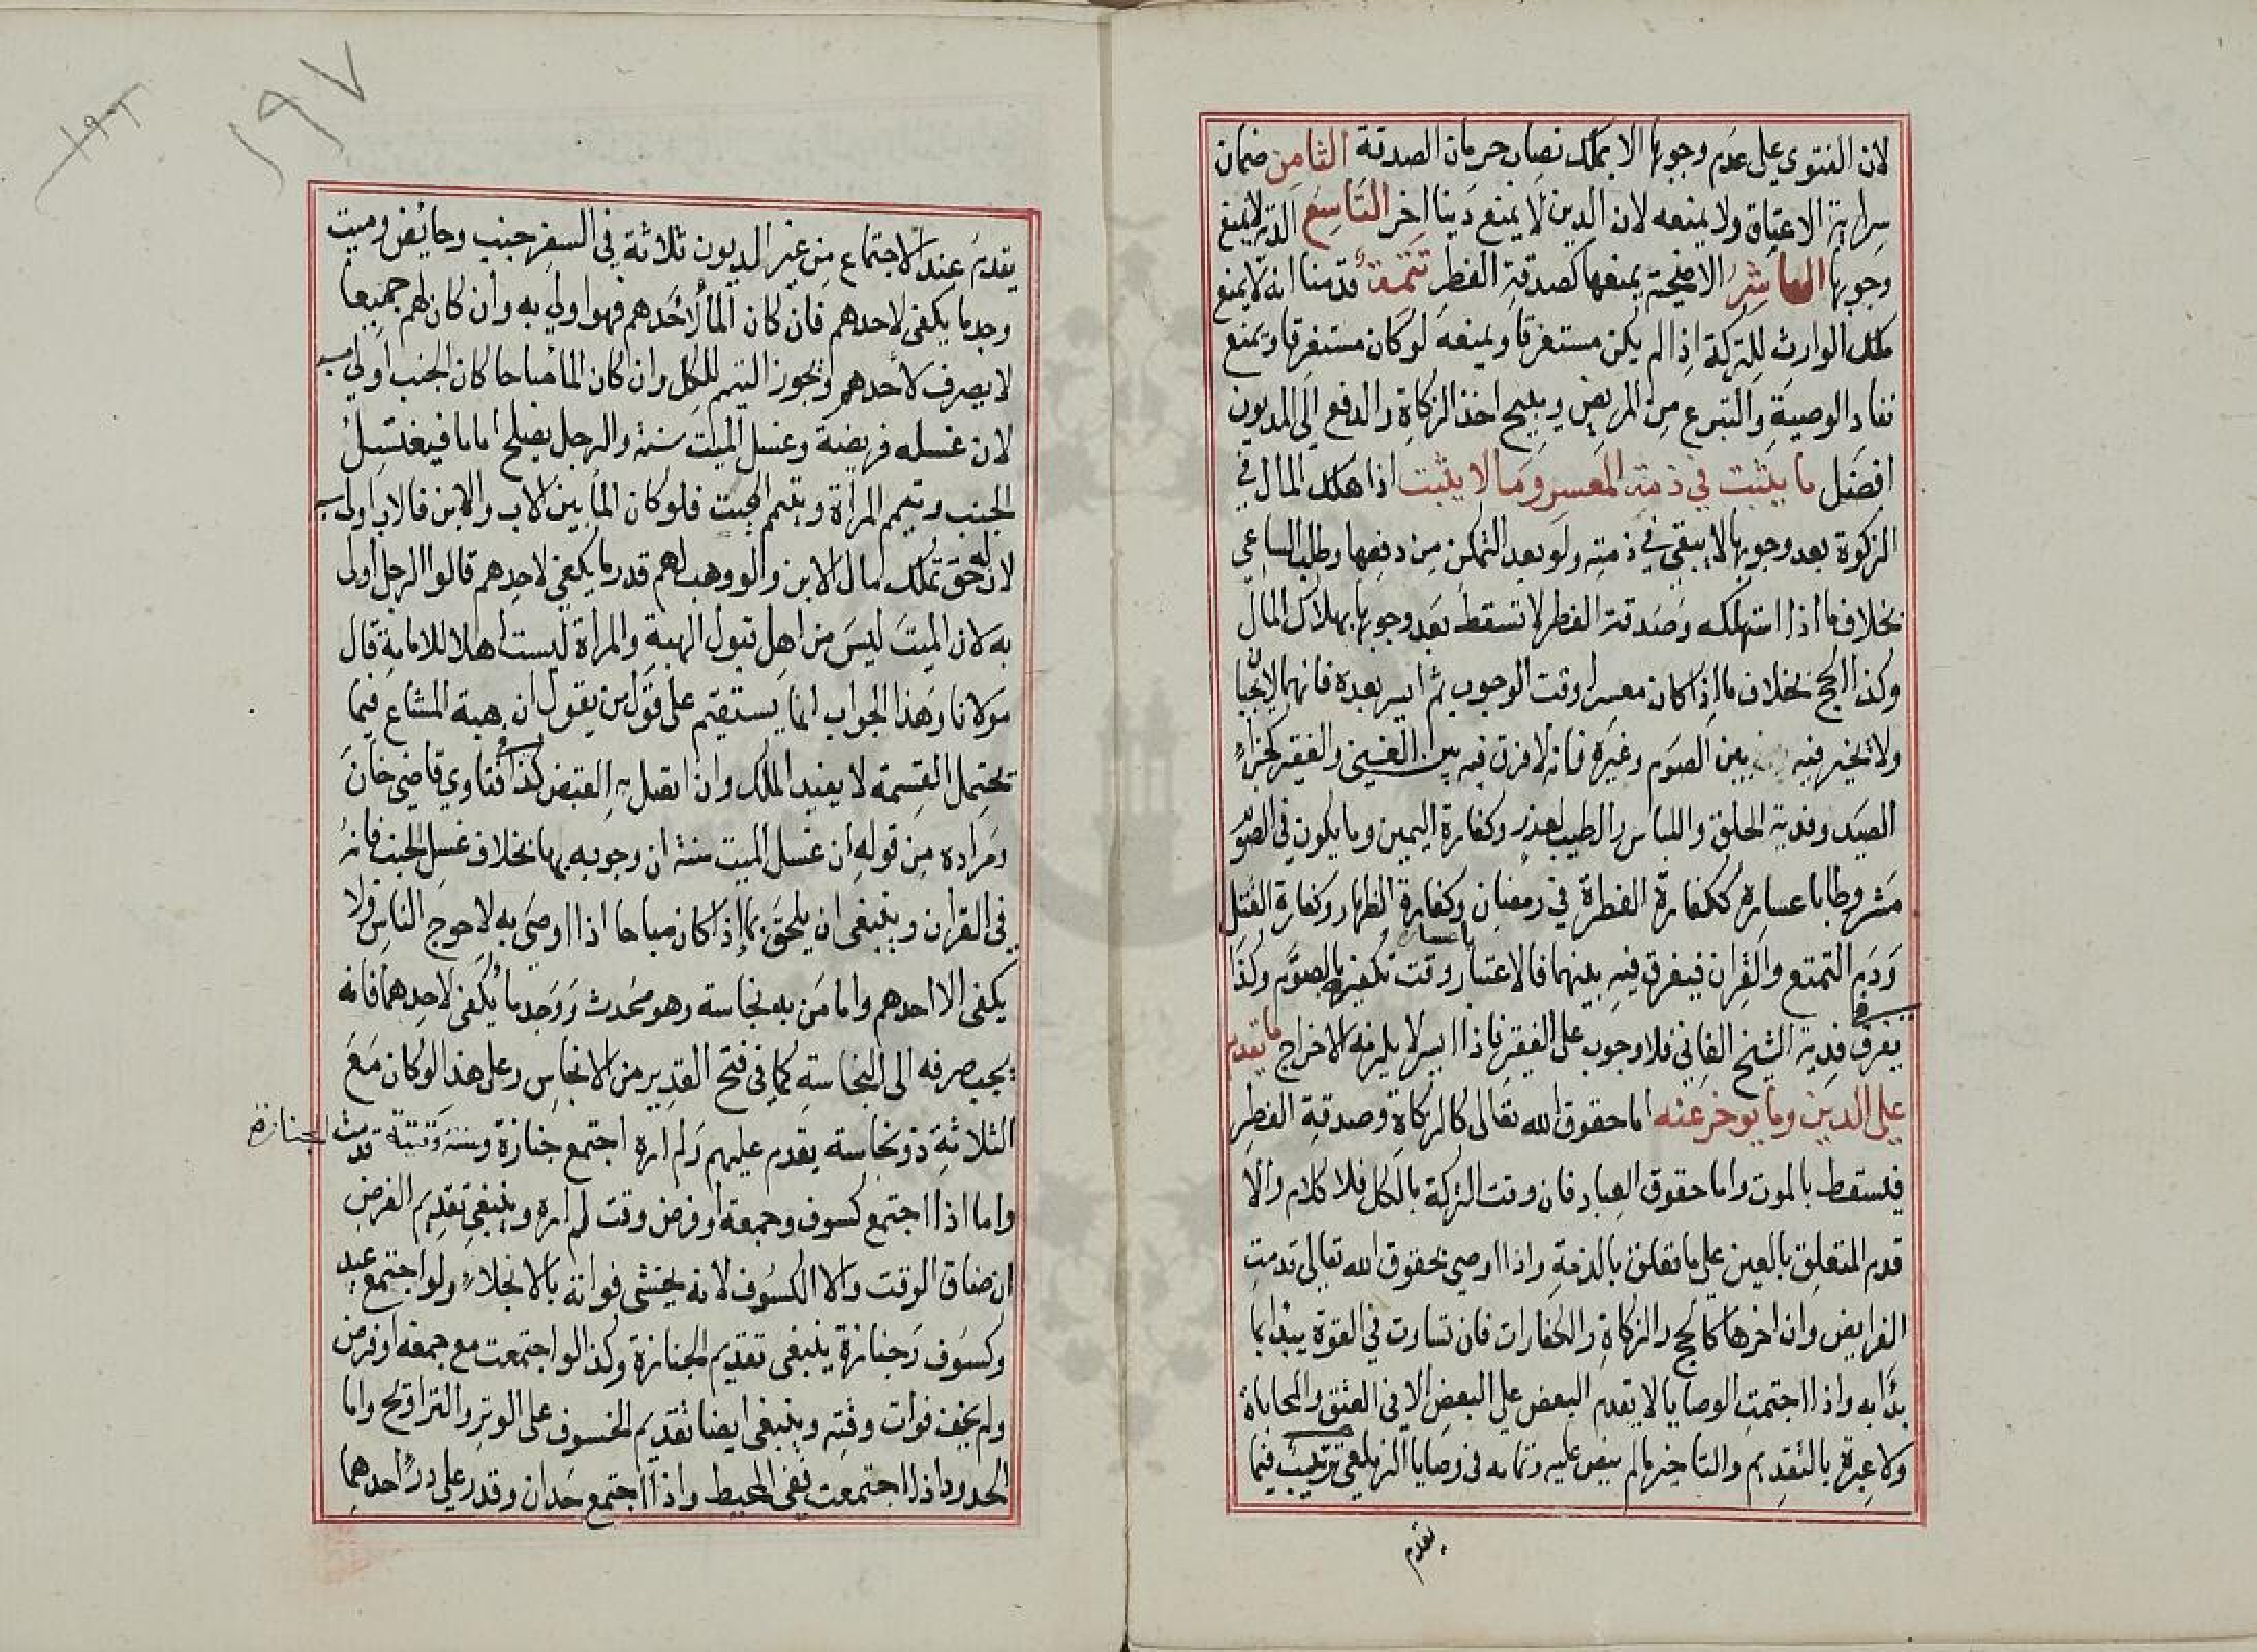 لان الفتوي على عدم وجوبها الا بملك نصاب حرمان الصدقة الثامن ضمان
سراية الاعتاق ولا يمنعه لان الدين لا يمنع دينا اخر التاسع الدية لا يمنع
وجوبها العاشر الاضحية يمنعها كصدقة الفطر تتمة قدمنا انه لا يمنع
ملك الوارث للتركة اذا لم يكن مستغرقا ويمنعه لو كان مستغرقا ويمنع
نفاد الوصية والتبرع من المريض ويبيح اخذ الزكاة والدفع الى المديون
افضل ما يثبت في ذمة المعسر وما لا يثبت اذا هلك المال في
الزكوة بعد وجوبها لا يبقى في ذمته ولو بعد التمكن من دفعها وطلب الساعي
بخلاف ما اذا استهلكه وصدقة الفطر لا تسقط بعد وجوبها بهلاك المال
وكذا الحج بخلاف ما اذا كان معسرا وقت الوجوب ثم ايسر بعده فانهما لا يجبان
ولا يخير فيه بين الصوم وغيره فانه لا فرق فيه بين الغني والفقير كجزاء
الصيد وفدية الحلق واللباس والطيب لعذر وكفارة اليمين وما يكون في الصوم
مشروطا باعساره ككفارة الفطرة في رمضان وكفارة الظهار وكفارة القتل
ودم التمتع والقران فيفرق فيه بينهما فالاعتبار باعساره وقت تكفيره بالصوم وكذا
يفرق في فدية الشيخ الفاني فلا وجوب على الفقير فاذا ايسر لا يلزمه الاخراج ما يقدم
على الدين وما يوخر عنه اما حقوق الله تعالى كالزكاة وصدقة الفطر
فيسقط بالموت واما حقوق العباد فان وفت التركة بالكل فلا كلام والا
قدم المتعلق بالعين على ما تعلق بالذمة واذا اوصى بحقوق الله تعالى قدمت
الفرايض وان اخرها كالحج والزكاة والكفارات فان تساوت في القوة يبدا بما
بدأ به واذا اجتمعت الوصايا لا يقدم البعض على البعض الا في العتق والمحاباة
ولا عبرة بالتقديم والتاخير ما لم ينص عليه وتمامه في وصايا الزيلعي ترتيب فيما
يقدم
١٩٧
١٩٦
يقدم عند الاجتماع من غير الديون ثلاثة في السفر جنب وحائض وميت
وجد ما يكفي لاحدهم فان كان الماء لأحدهم فهو اولى به وان كان لهم جميعا
لا يصرف لأحدهم ويجوز التيمم للكل وان كان الماء مباحا كان الجنب اولى به
لان غسله فريضة وغسل الميت سنة والرجل يصلح اماما فيغتسل
الجنب وتيمم المراة وييمم الميت فلو كان الماء بين الاب والابن فالاب اولى به
لان له حق تملك مال الابن ولو وهب لهم قدر ما يكفي لاحدهم قالوا الرجل اولى
به لان الميت ليس من اهل قبول الهبة والمراة ليست اهلا للامامة قال
مولانا وهذا الجواب انما يستقيم على قول من يقول ان هبة المشاع فيما
يحتمل القسمة لا يفيد الملك وان اتصل به القبض كذا في فتاوي قاضي خان
ومراده من قوله ان غسل الميت سنة ان وجوبه بها بخلاف غسل الجنب فانه
في القران وينبغي ان يلحق بما اذا كان مباحا اذا اوصى به لاحوج الناس ولا
يكفي الا احدهم واما من به نجاسة وهو محدث ووجد ما يكفي لاحدهما فانه
يجب صرفه الى النجاسة كما في فتح القدير من الانجاس وعلى هذا لو كان مع
الثلاثة ذو نجاسة يقدم عليهم ولم اره اجتمع جنازة وسنة وقتية قدمت الجنازة
واما اذا اجتمع كسوف وجمعة او فرض وقت لم اره وينبغي تقديم الفرض
ان ضاق الوقت والا الكسوف لانه يخشى فواته بالانجلاء ولو اجتمع عيد
وكسوف وجنازة ينبغي تقديم الجنازة وكذا لو اجتمعت مع جمعة او فرض
ولم يخف فوات وقته وينبغي ايضا تقديم الخسوف على الوتر والتراويح واما
الحدود اذا اجتمعت ففي المحيط واذا اجتمع حدان وقدر على درء احدهما